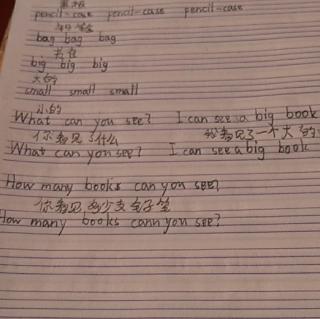 pencil-case pencil-case pencil-case
bag bag bag
书包
big big big
大的
small small small
小的
What can you see? I can see a big book
你看见了什么 我看见了一个大的
What can you see? I can see a big book
How many books can you see?
你看见多少支铅子笔
How many books cann you see?